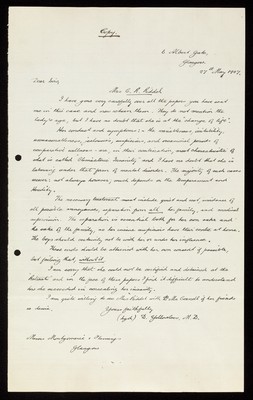 Copy.
6 Albert Gate,
Glasgow
27th May 1907.
Dear Sirs,
Mrs C. R. Riddoch
I have gone very carefully over all the papers you have sent
me in this case and now return them. They do not mention the
lady's age, but I have no doubt that she is at the "change of life".
Her conduct and symptoms:- the restlessness, irritability,
unreasonableness, jealousies, suspicions, and occasional periods of
are, in their combination, most characteristic of
what is called Climacteric Insanity and I have no doubt that she is
labouring under that form of mental disorder. The majority of such cases
recover: not always however, much depends on the temperament and
heredity.
The necessary treatment must include quiet and rest, avoidance of
all possible annoyances, separation from all her family, and medical
supervision. The separation is essential both for her own sake and
the sake of the family, as her insane suspicions have their centre at home.
The boys should certainly not be with her or under her influence.
These ends should be attained with her own consent if possible,
but failing that, without it.
I am sorry that she could not be certified and detained at the
and on the face of these papers I find it difficult to understand
how she succeeded in concealing her insanity.
I am quite willing to see Mrs Riddoch with Dr McConnell if her friends
so desire.
Yours faithfully
(sgd) D. Yellowlees, M.D.
Messrs Montgomerie & Fleming
Glasgow